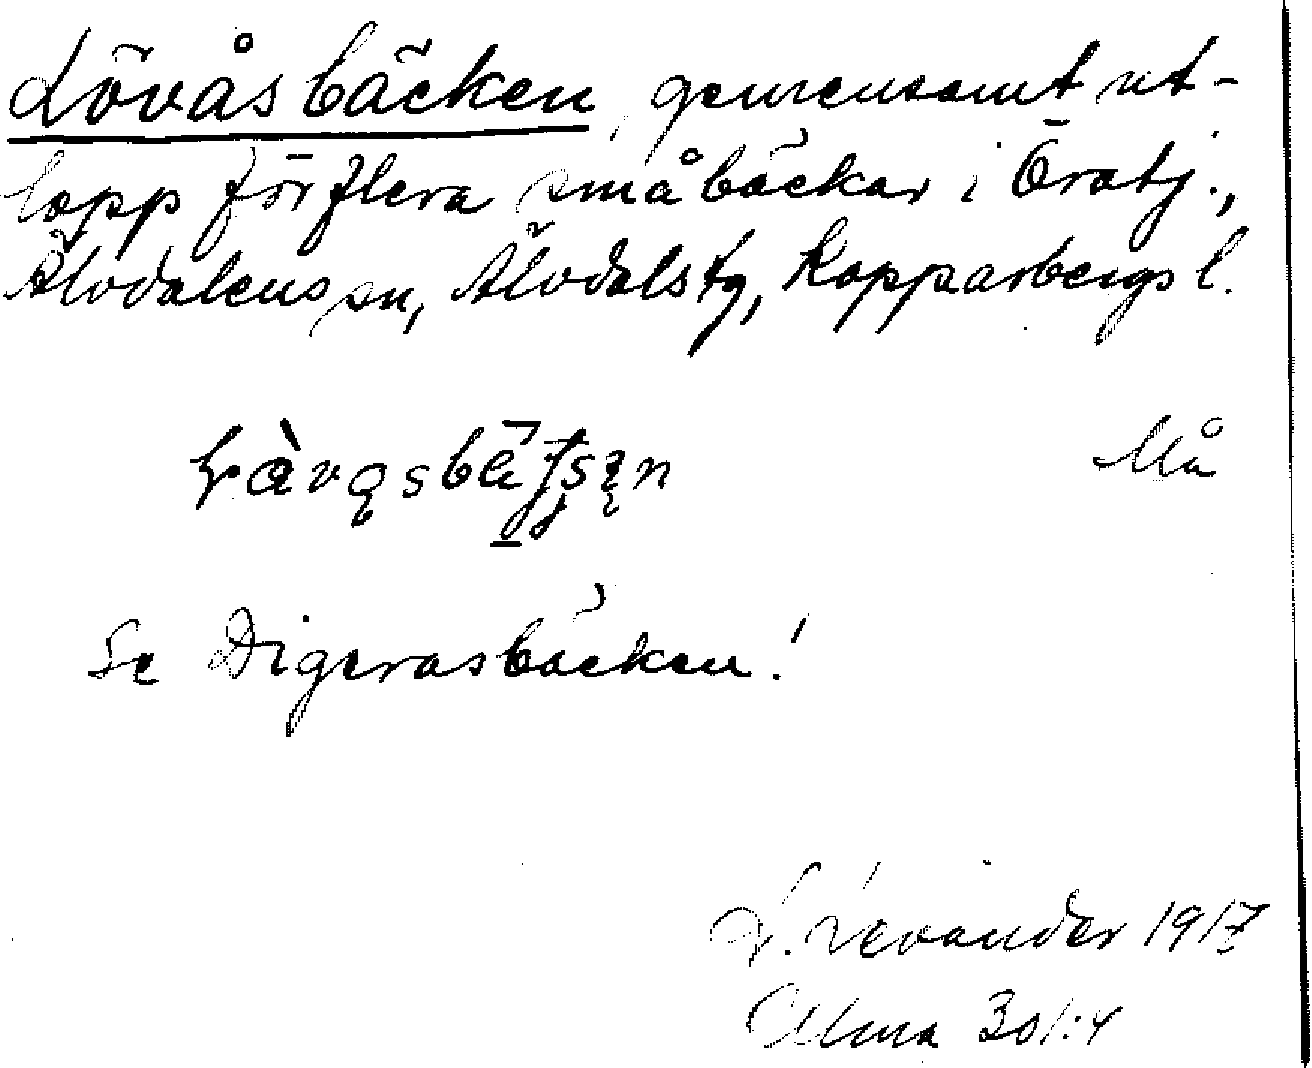 Lövåsbäcken, gemensamt ut-
lopp för flera småbäckar i Öratj.,
Älvdalens sn, Älvdals tg, Kopparbergs l.
Må
Se Digeråsbäcken!
L. Levander 1917
Ulma 301:4